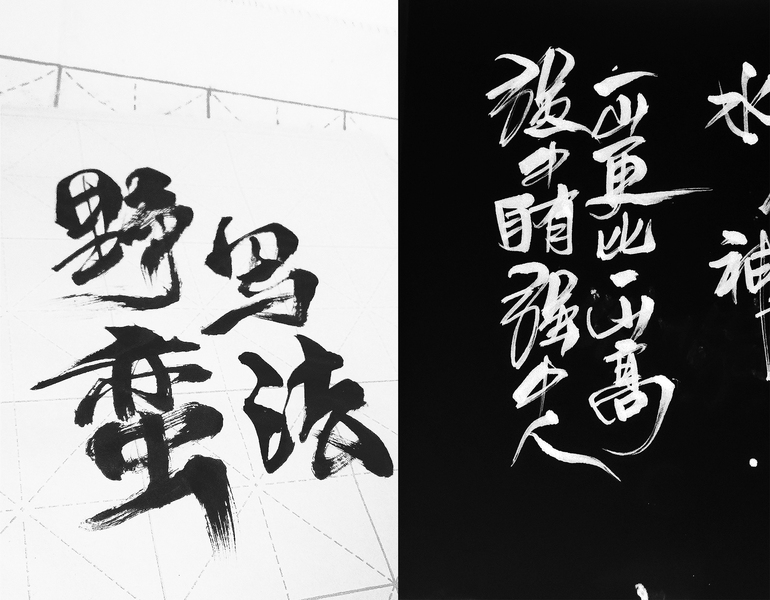 野蛮
写法
水
神
一山更比一山高
强中自有强中人